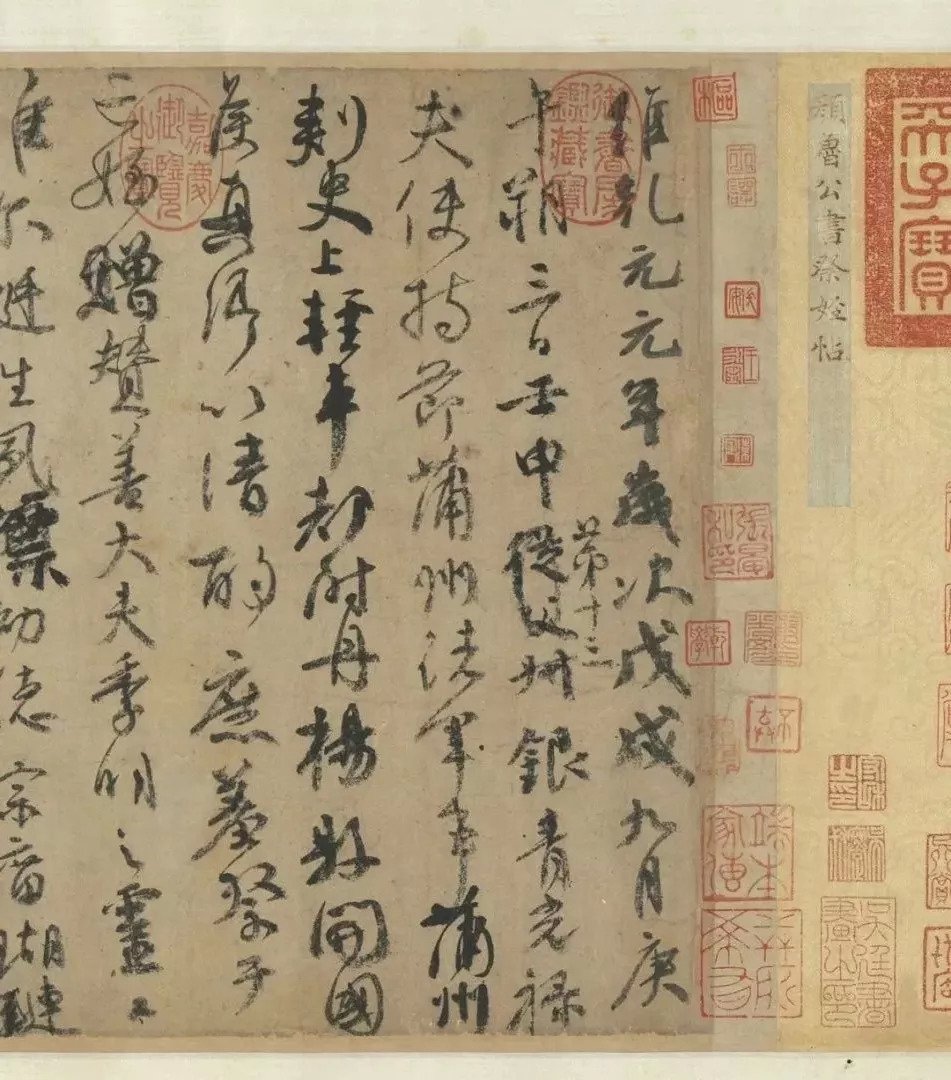 顏魯公書祭姪帖
維乾元元年歲次戊戌九月庚
午朔三日壬申第十三從父叔銀青光祿
夫使持節蒲州諸軍事蒲州
刺史上輕車都尉丹楊縣開國
侯真卿以清酌庶羞祭于
亡姪贈贊善大夫季明之靈曰
惟爾挺生夙標幼德宗廟瑚璉
天子寶
御書房鑑藏寶
嘉慶御覽之寶